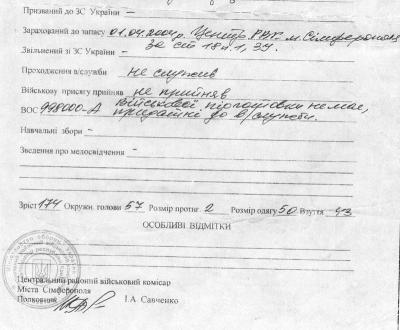 Призваний до ЗС України –
Зарахований до запасу 01.04.2004р. Центр. РВК м. Сімферополя
за ст 18 п.1, ЗУ.
Звільнений зі ЗС України –
Проходження в/служби не служив
Військову присягу прийняв не прийняв
ВОС 998000-А Військової підготовки немає,
придатні до в/служби.
Навчальні збори –
Зведення про мелосвідчення –
Зріст 174 Окружн. голови 57 Розмір протиг. 2 Розмір одягу 50 Взуття 43
ОСОБЛИВІ ВІДМІТКИ
Центральний районий військовий комісар
Міста Сімферополя
Полковник І.А. Савченко